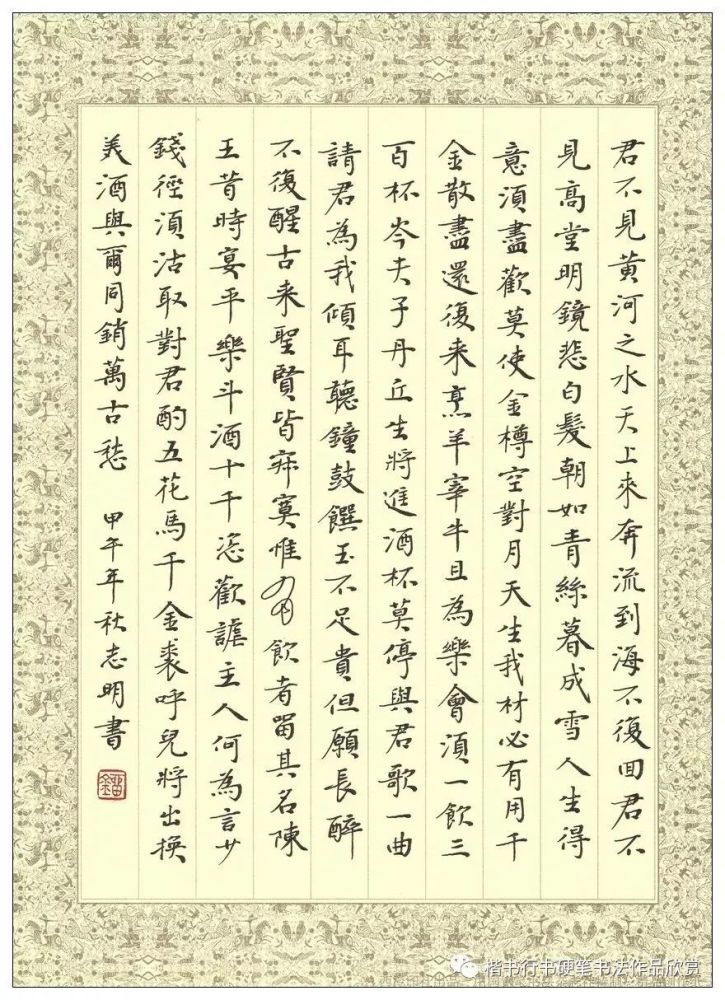 君不見黃河之水天上來奔流到海不復回君不
見高堂明鏡悲白髮朝如青絲暮成雪人生得
意須盡歡莫使金樽空對月天生我材必有用千
金散盡還復来烹羊宰牛且為樂會須一飲三
百杯岑夫子丹丘生將進酒杯莫停與君歌一曲
請君為我傾耳聽鐘鼓饌玉不足貴但願長醉
不復醒古来聖賢皆寂寞惟有飲者留其名陳
王昔時宴平樂斗酒十千恣歡謔主人何為言少
錢徑須沽取對君酌五花馬千金裘呼兒將出換
美酒與爾同銷萬古愁 甲午年秋志明書
楷书行书硬笔书法作品欣赏